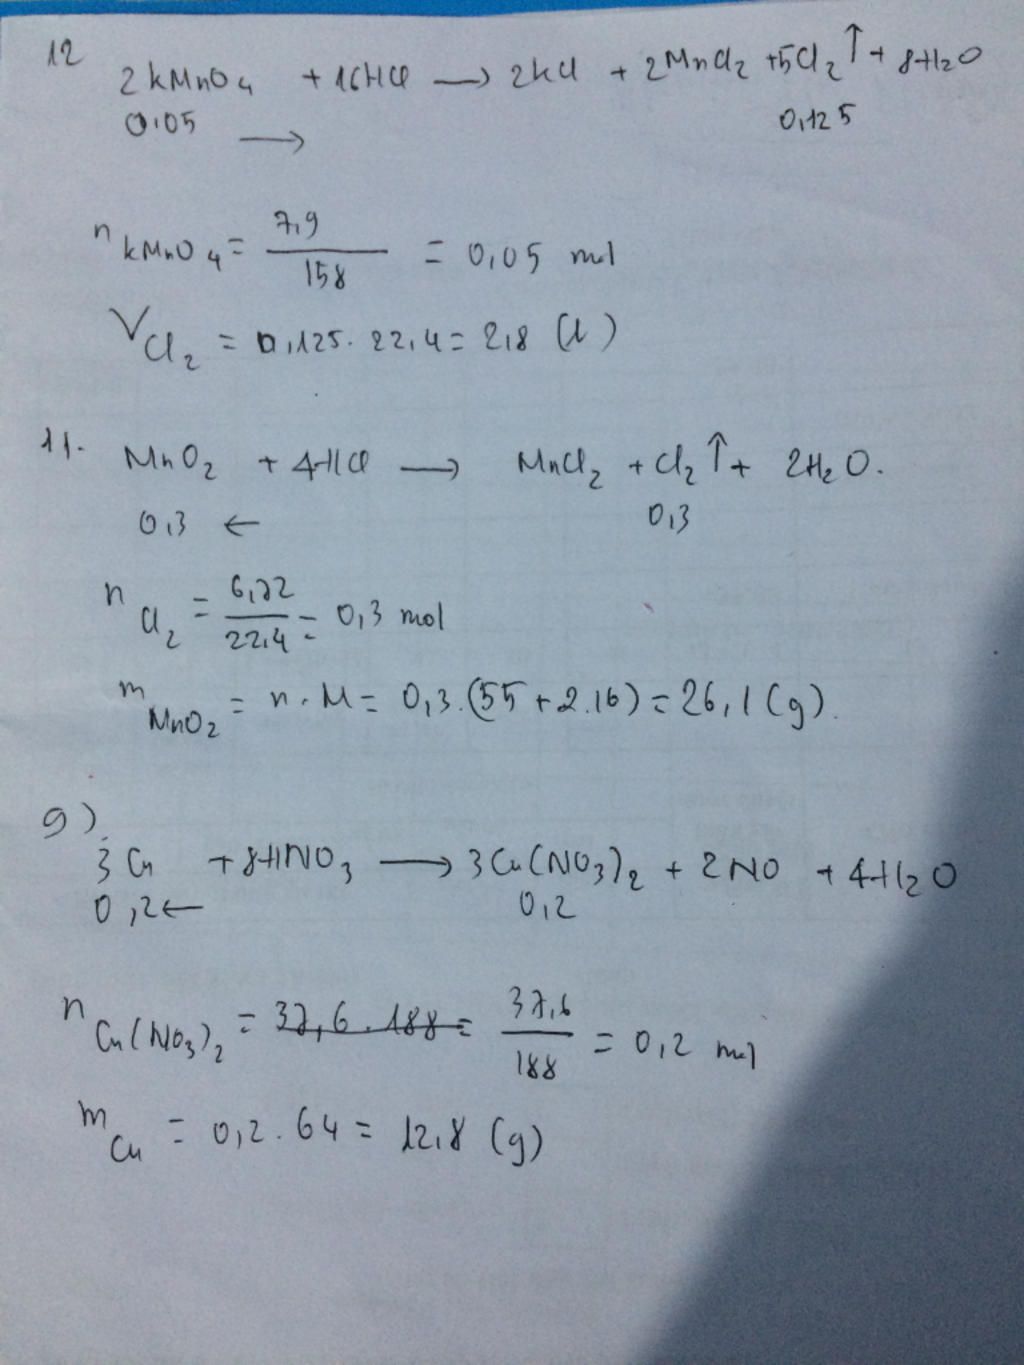 12
2KMnO4 + 16HCl → 2KCl + 2MnCl2 + 5Cl2↑ + 8H2O
0,05 → 0,125
nKMnO4 = 7,9/158 = 0,05 mol
VCl2 = 0,125. 22,4 = 2,8 (l)
11. MnO2 + 4HCl → MnCl2 + Cl2↑ + 2H2O.
0,3 ← 0,3
nCl2 = 6,72/22,4 = 0,3 mol
mMnO2 = n.M = 0,3.(55+2.16) = 26,1 (g).
9)
3Cu + 8HNO3 → 3Cu(NO3)2 + 2NO + 4H2O
0,2 ← 0,2
nCu(NO3)2 = 37,6.188 = 37,6/188 = 0,2 mol
mCu = 0,2.64 = 12,8 (g)